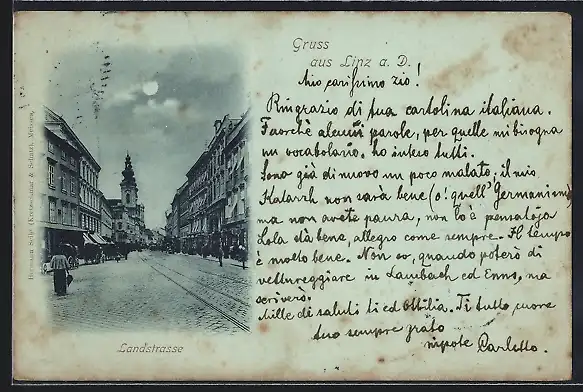 Gruss
aus Linz a. D.
Mio carissimo zio!
Ringrazio di tua cartolina italiana.
Fuorchè alcuni parole, per quelle mi bisogna
un vocabolario, ho inteso tutti.
Sono già di nuovo un poco malato; il mio
Katarrh non sarà bene (o! quell' Germanism)
ma non avete paura, non
Lola stà bene, allegro come sempre. Il tempo
è molto bene. Non so, quando poterò di
vettureggiare in Lambach ed Enns, ma
scriverò.
Mille di saluti ti ed Ottilia. Di tutto cuore
tuo sempre grato
nipote Carletto.
Landstrasse
Hermann Seibt (Kretzschmar & Schatz), Meissen.